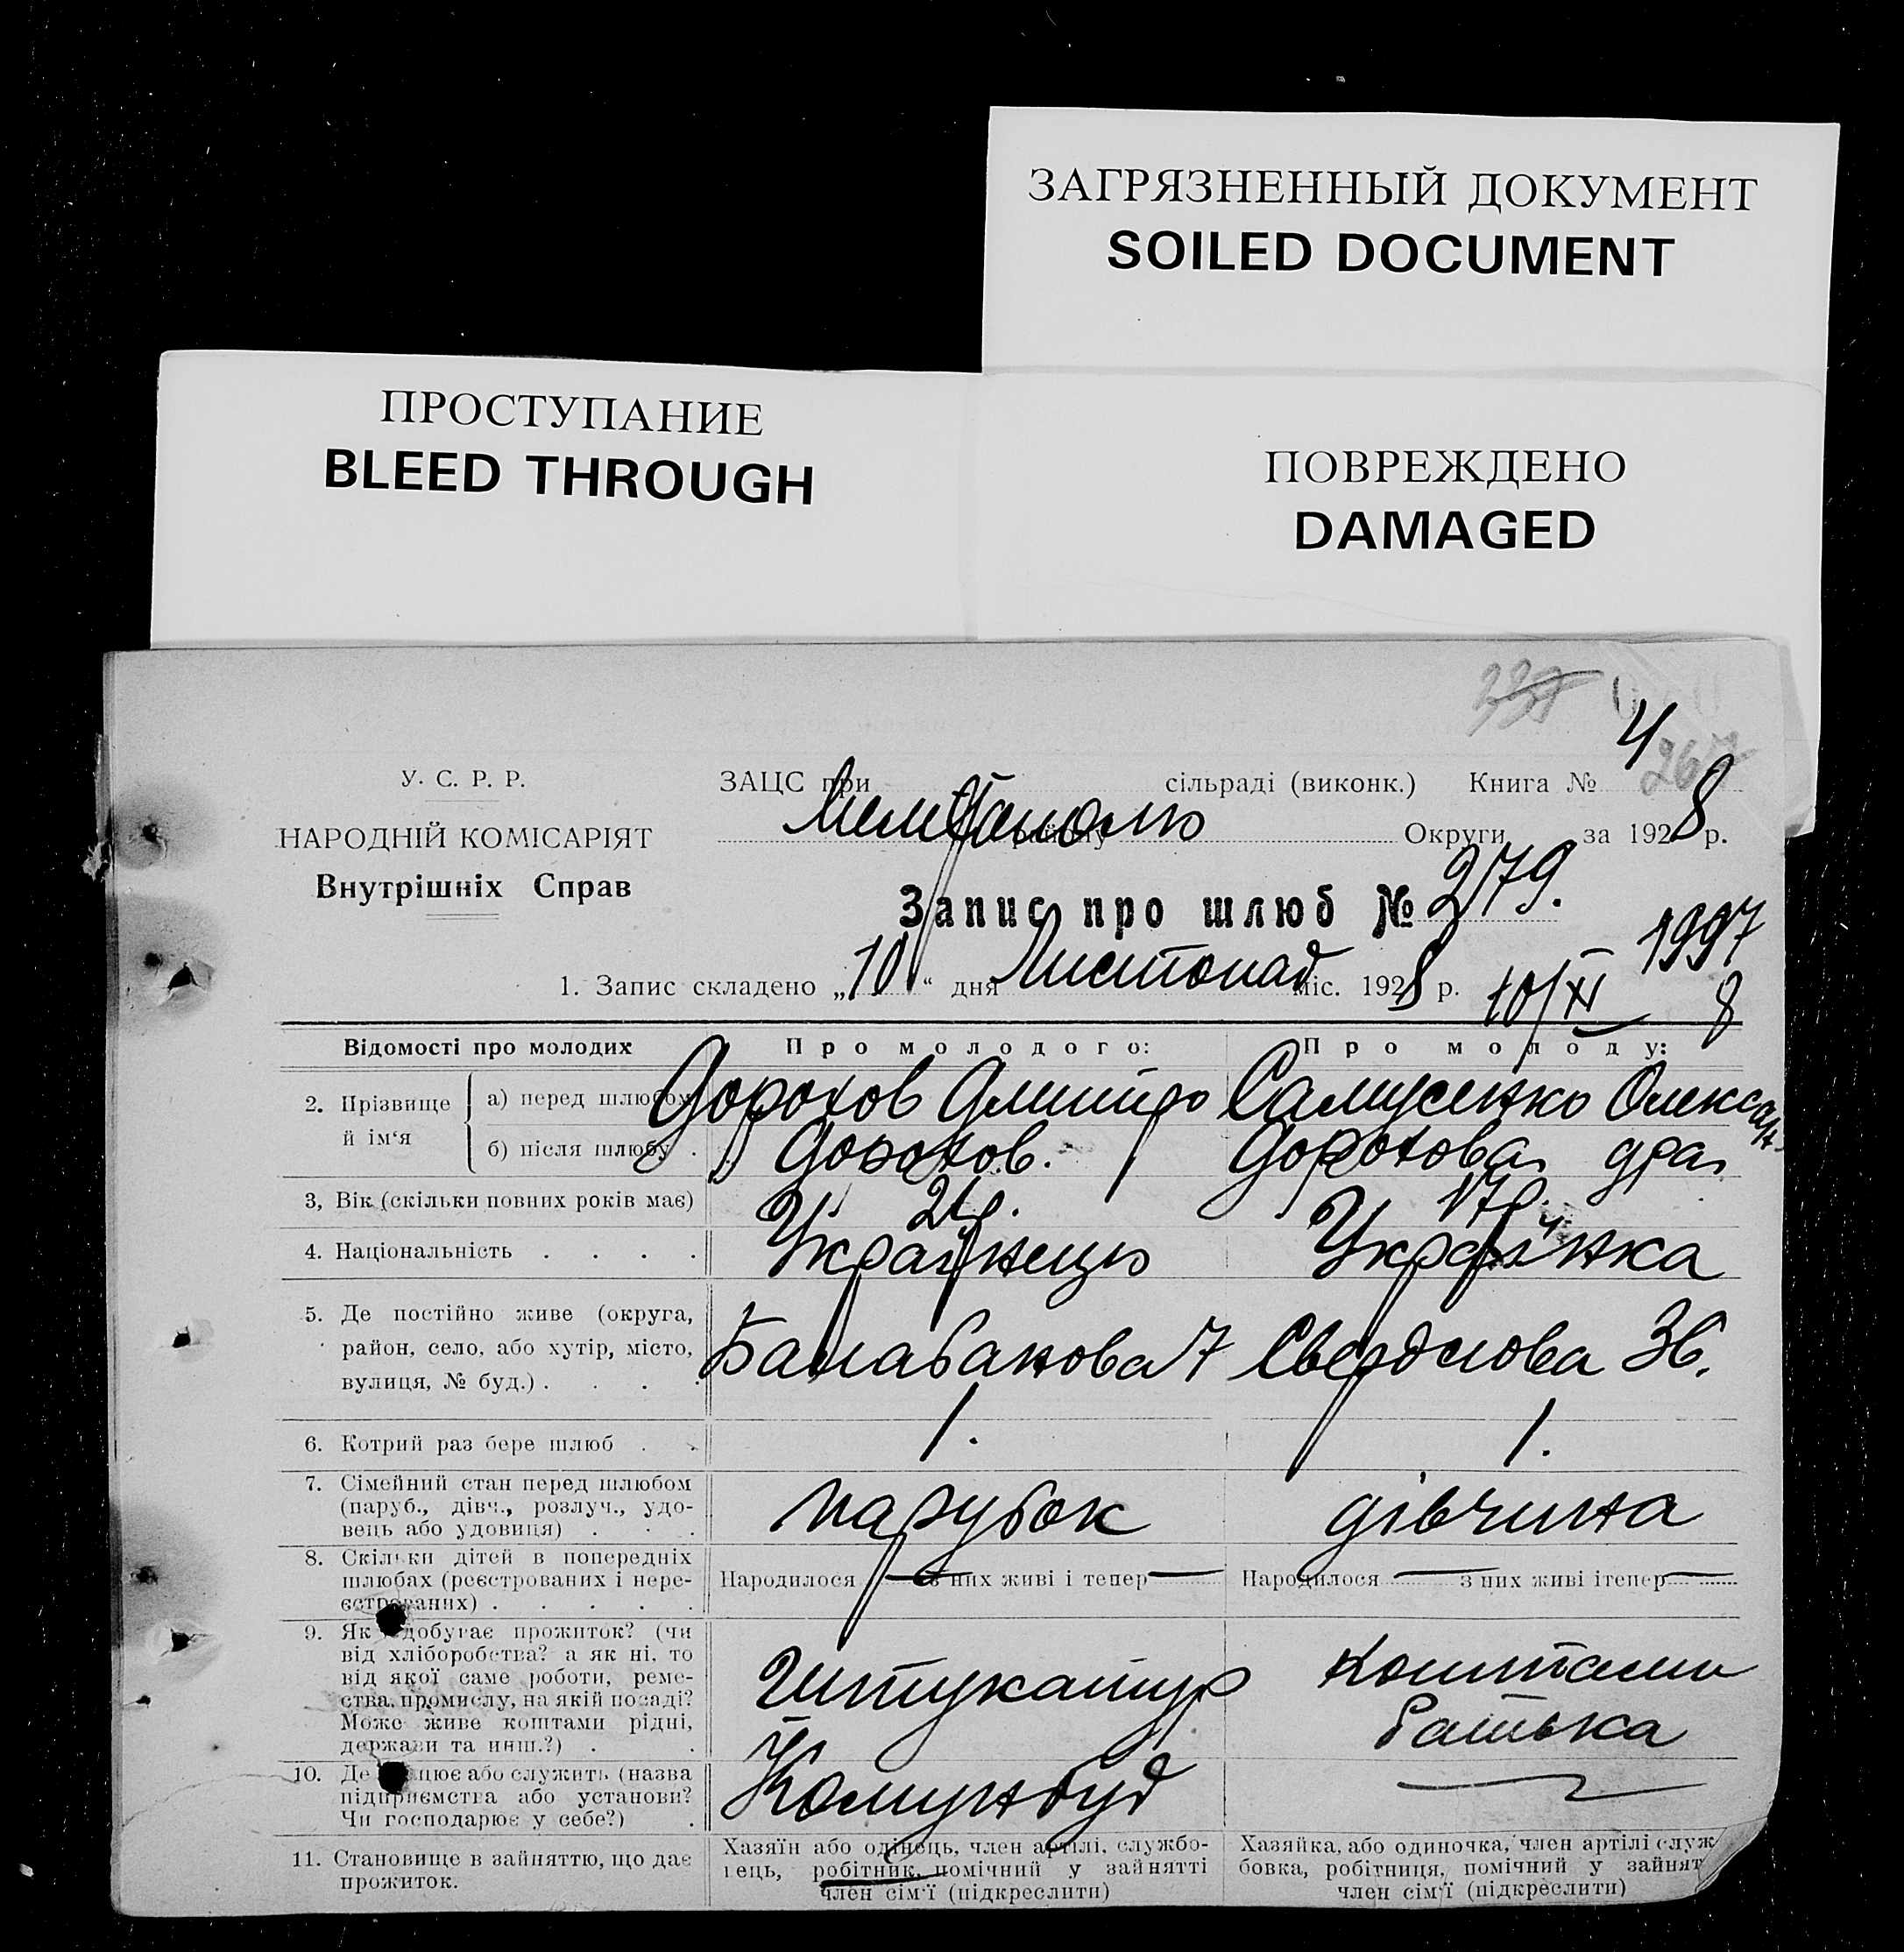 ЗАГРЯЗНЕННЫЙ ДОКУМЕНТ
SOILED DOCUMENT
ПРОСТУПАНИЕ
BLEED THROUGH
ПОВРЕЖДЕНО
DAMAGED
У. С. Р. Р.
НАРОДНІЙ КОМІСАРІЯТ
Внутрішніх Справ
ЗАЦС при сільраді (виконк.) Книга № 4
Мелітополю району Округи за 1928 р.
Запис про шлюб № 279.
1997
1. Запис складено „10“ дня Листопад міс. 1928 р. 10/XI 8
Відомості про молодих
Про молодого:
Про молоду:
2. Прізвище й ім‘я
а) перед шлюбом
Дорохов Дмитро
Самусенко Олексан
б) після шлюбу
Дорохов.
Дорохова дра
3, Вік (скільки повних років має)
21р.
17р.
4. Національність
Українець
Українка
5. Де постійно живе (округа,
район, село, або хутір, місто,
вулиця, № буд.)
Балабанова 7
Свердлова 36.
6. Котрий раз бере шлюб
1.
1.
7. Сімейний стан перед шлюбом
(паруб., дівч., розлуч., удо-
вець або удовиця)
парубок
дівчина
8. Скільки дітей в попередніх
шлюбах (реєстрованих і нере-
єстрованих)
Народилося — з них живі і тепер —
Народилося — з них живі ітепер —
9. Як здобуває прожиток? (чи
від хліборобства? а як ні, то
від якої саме роботи, реме-
ства, промислу, на якій посаді?
Може живе коштами рідні,
держави та инш.?)
Штукатур
коштами
батька
10. Де працює або служить (назва
підприємства або установи?
Чи господарює у себе?)
Комунбуд
11. Становище в зайняттю, що дає
прожиток.
Хазяїн або одінець, член артілі, службо-
вець, робітник, помічний у зайнятті
член сім‘ї (підкреслити)
Хазяйка, або одиночка, член артілі служ
бовка, робітниця, помічний у зайнят
член сім‘ї (підкреслити)